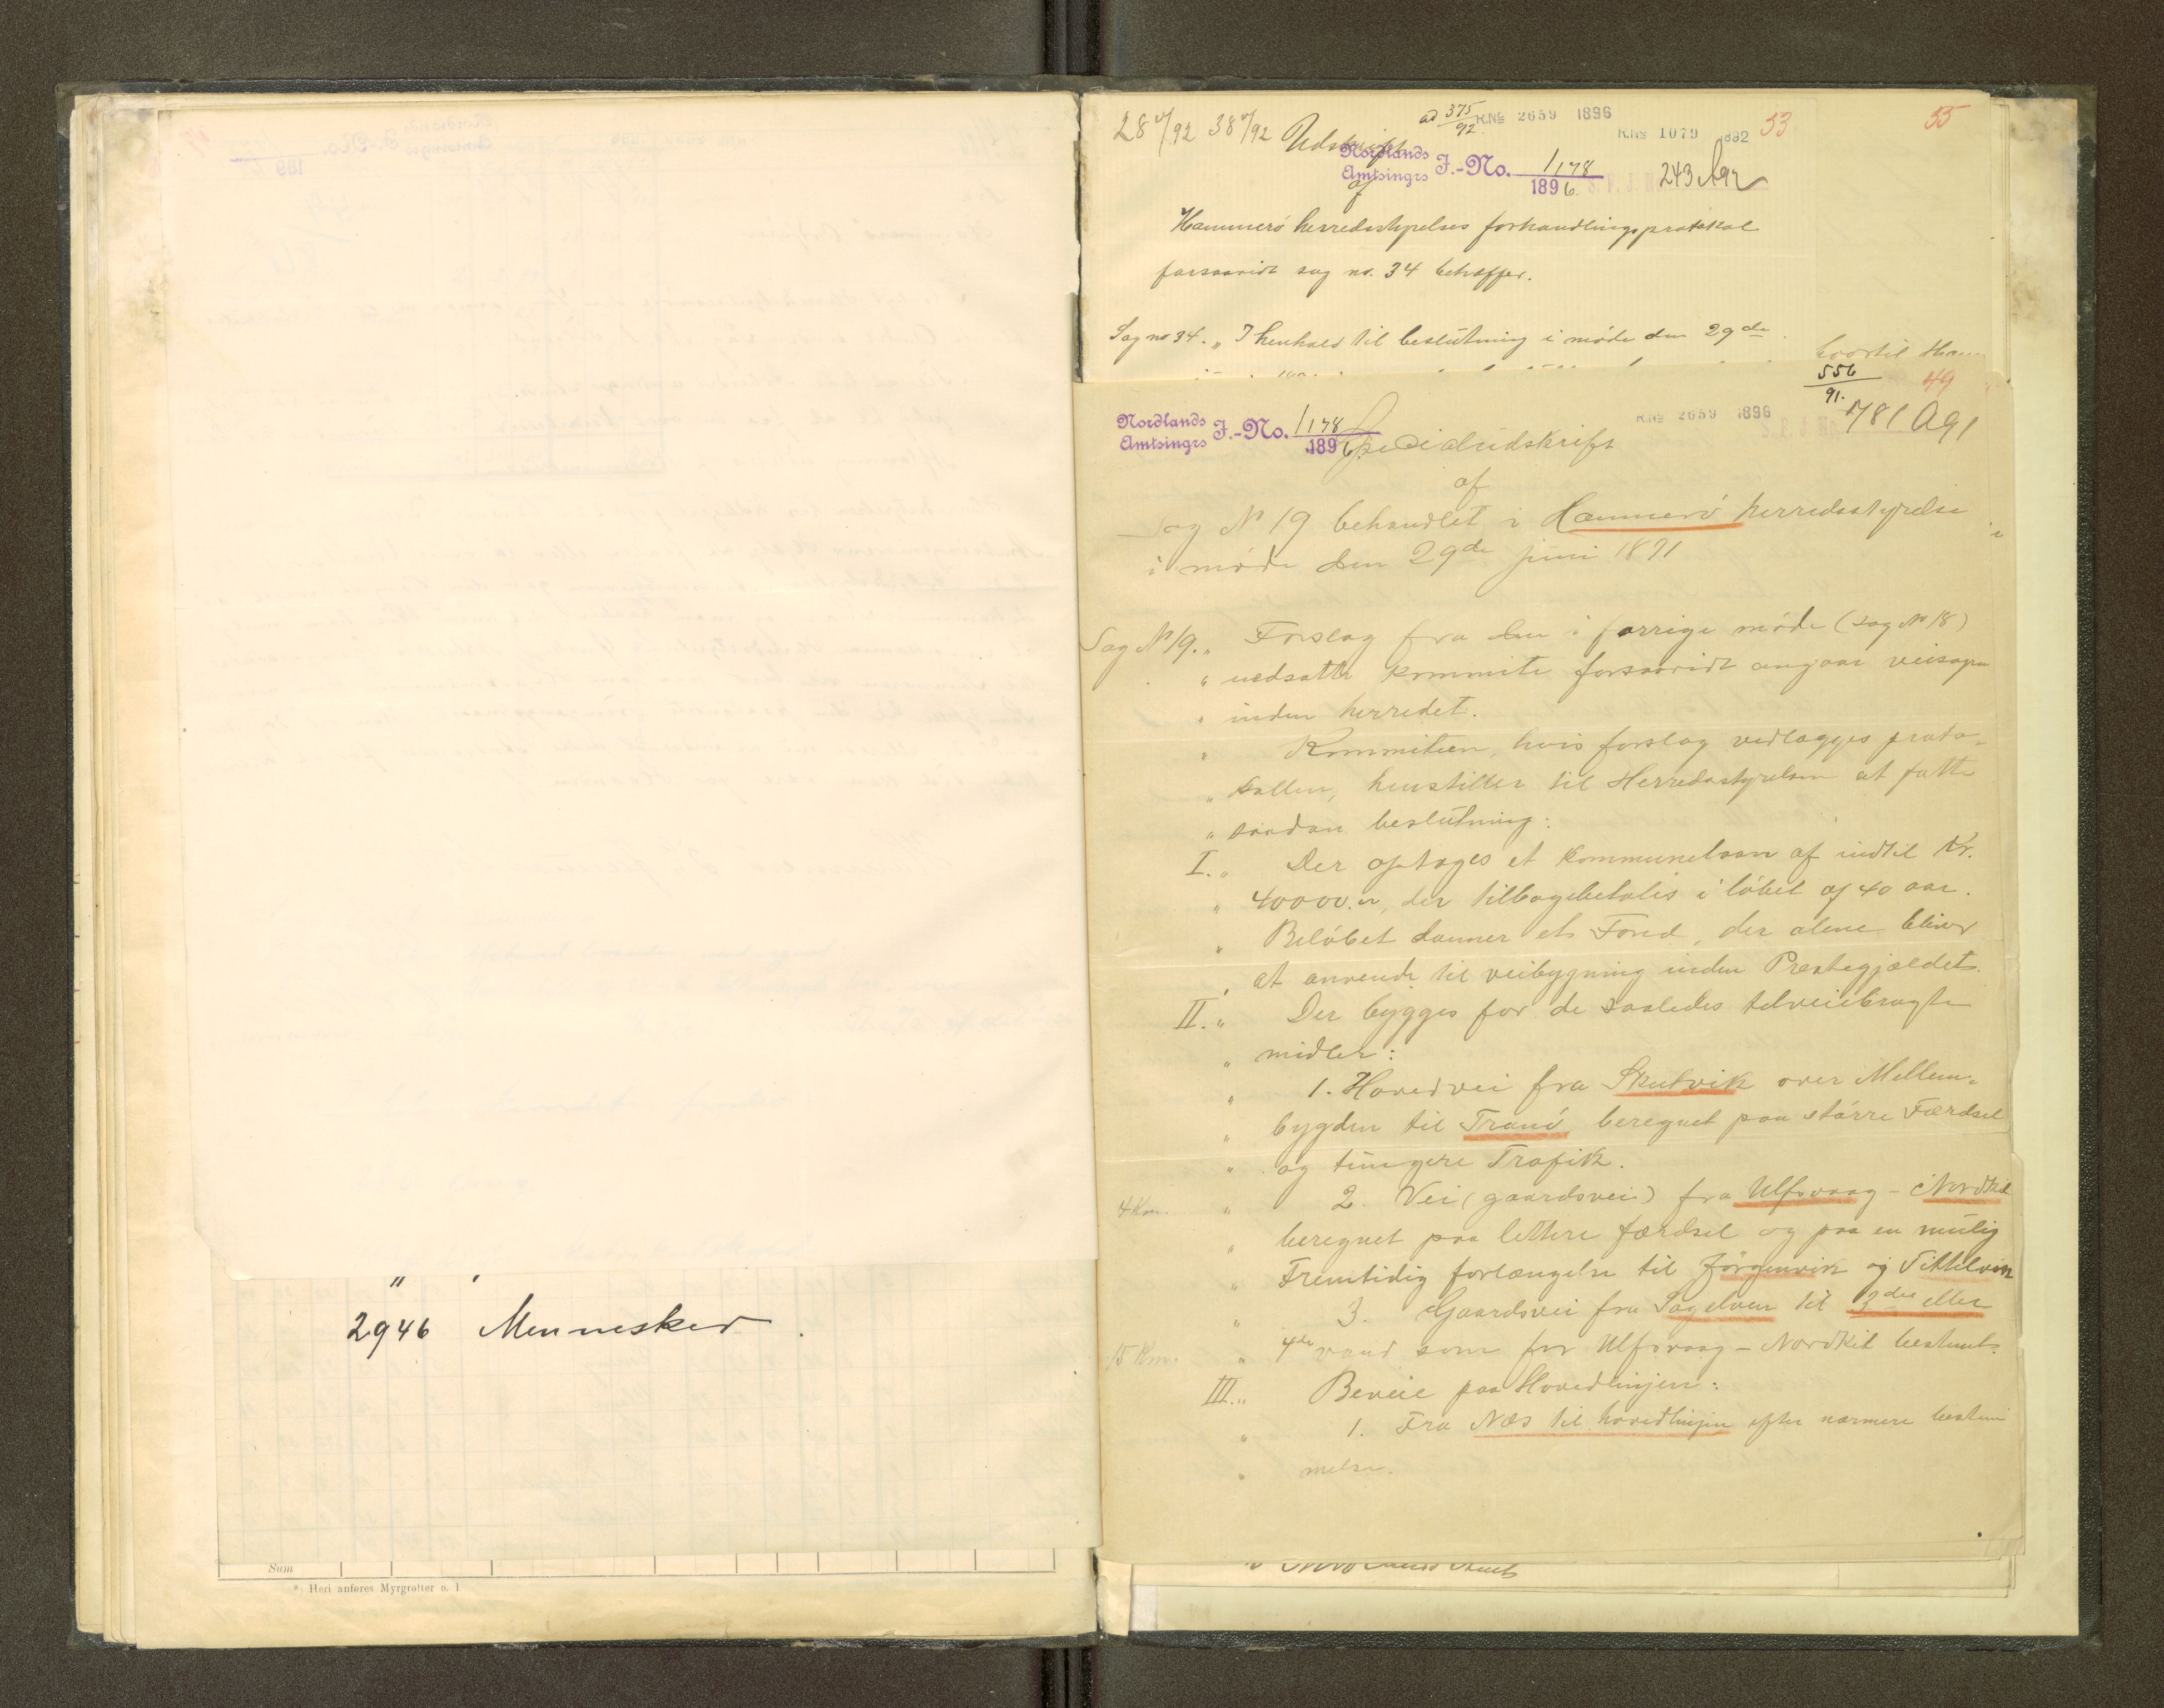 2946 Mennesker.
Sum
* Heri anføres Myrgrøfter o. l.
28 4/92 38 4/92 Udskrift
ad 375/92
R.No 2659 1896
R.No 1079 1892
53
55
Nordlands
Amtsingrs J.-No. 1178
1896.
243 A92
af
Hammerø herredsstyrelses forhandlingsprotokol
forsaavidt sag no. 34 betræffer.
Sag no 34. „ I henhold til beslutning i møde den 29de
hvortil Ham
556
91.
49
Nordlands
Amtsingrs J.-No. 1178
1896.
R.No 2659 1896
S. F. J. No. 781 A 91
Specialudskrift
af
Sag N 19 behandlet i Hammerø herredsstyrelse
i møde den 29de juni 1891
Sag N 19. „ Forslag fra den i forrige møde (sag No 18)
„ nedsatte kommite forsaavidt angaar veisagen
„ inden herredet.
„ Kommiteen, hvis forslag vedlægges proto-
„ kollen, henstiller til Herredsstyrelsen at fatte
„ saadan beslutning:
I. „ Der optages et kommunelaan af indtil Kr.
„ 40000.00, der tilbagebetales i løbet af 40 aar.
„ Beløbet danner et Fond, der alene bliver
„ at anvende til veibygning inden Præstegjældet.
II. „ Der bygges for de saaledes tilveiebragte
„ midler:
„ 1. Hovedvei fra Skutvik over Mellem-
„ bygden til Tranø beregnet paa større Færdsel
„ og tungere Trafik.
4 Km. „ 2. Vei (gaardsvei) fra Ulfsvaag - Nordkil
„ beregnet paa lettere færdsel og paa en mulig
„ Fremtidig forlængelse til Jørgenvik og Tittelvik
„ 3. Gaardsvei fra Sagelven til 3die eller
15 Km. „ 4de vand som for Ulfsvaag - Nordkil bestemt.
III. „ Beveie paa Hovedlinjen:
„ 1. Fra Næs til hovedlinjen efter nærmere bestem
„ melse.
Nordlands Amt